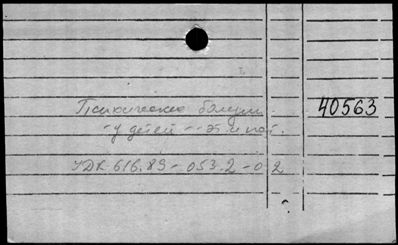 Психические болезни 40563
- у детей -- эт. и пат.
УДК-616.89-053.2-02